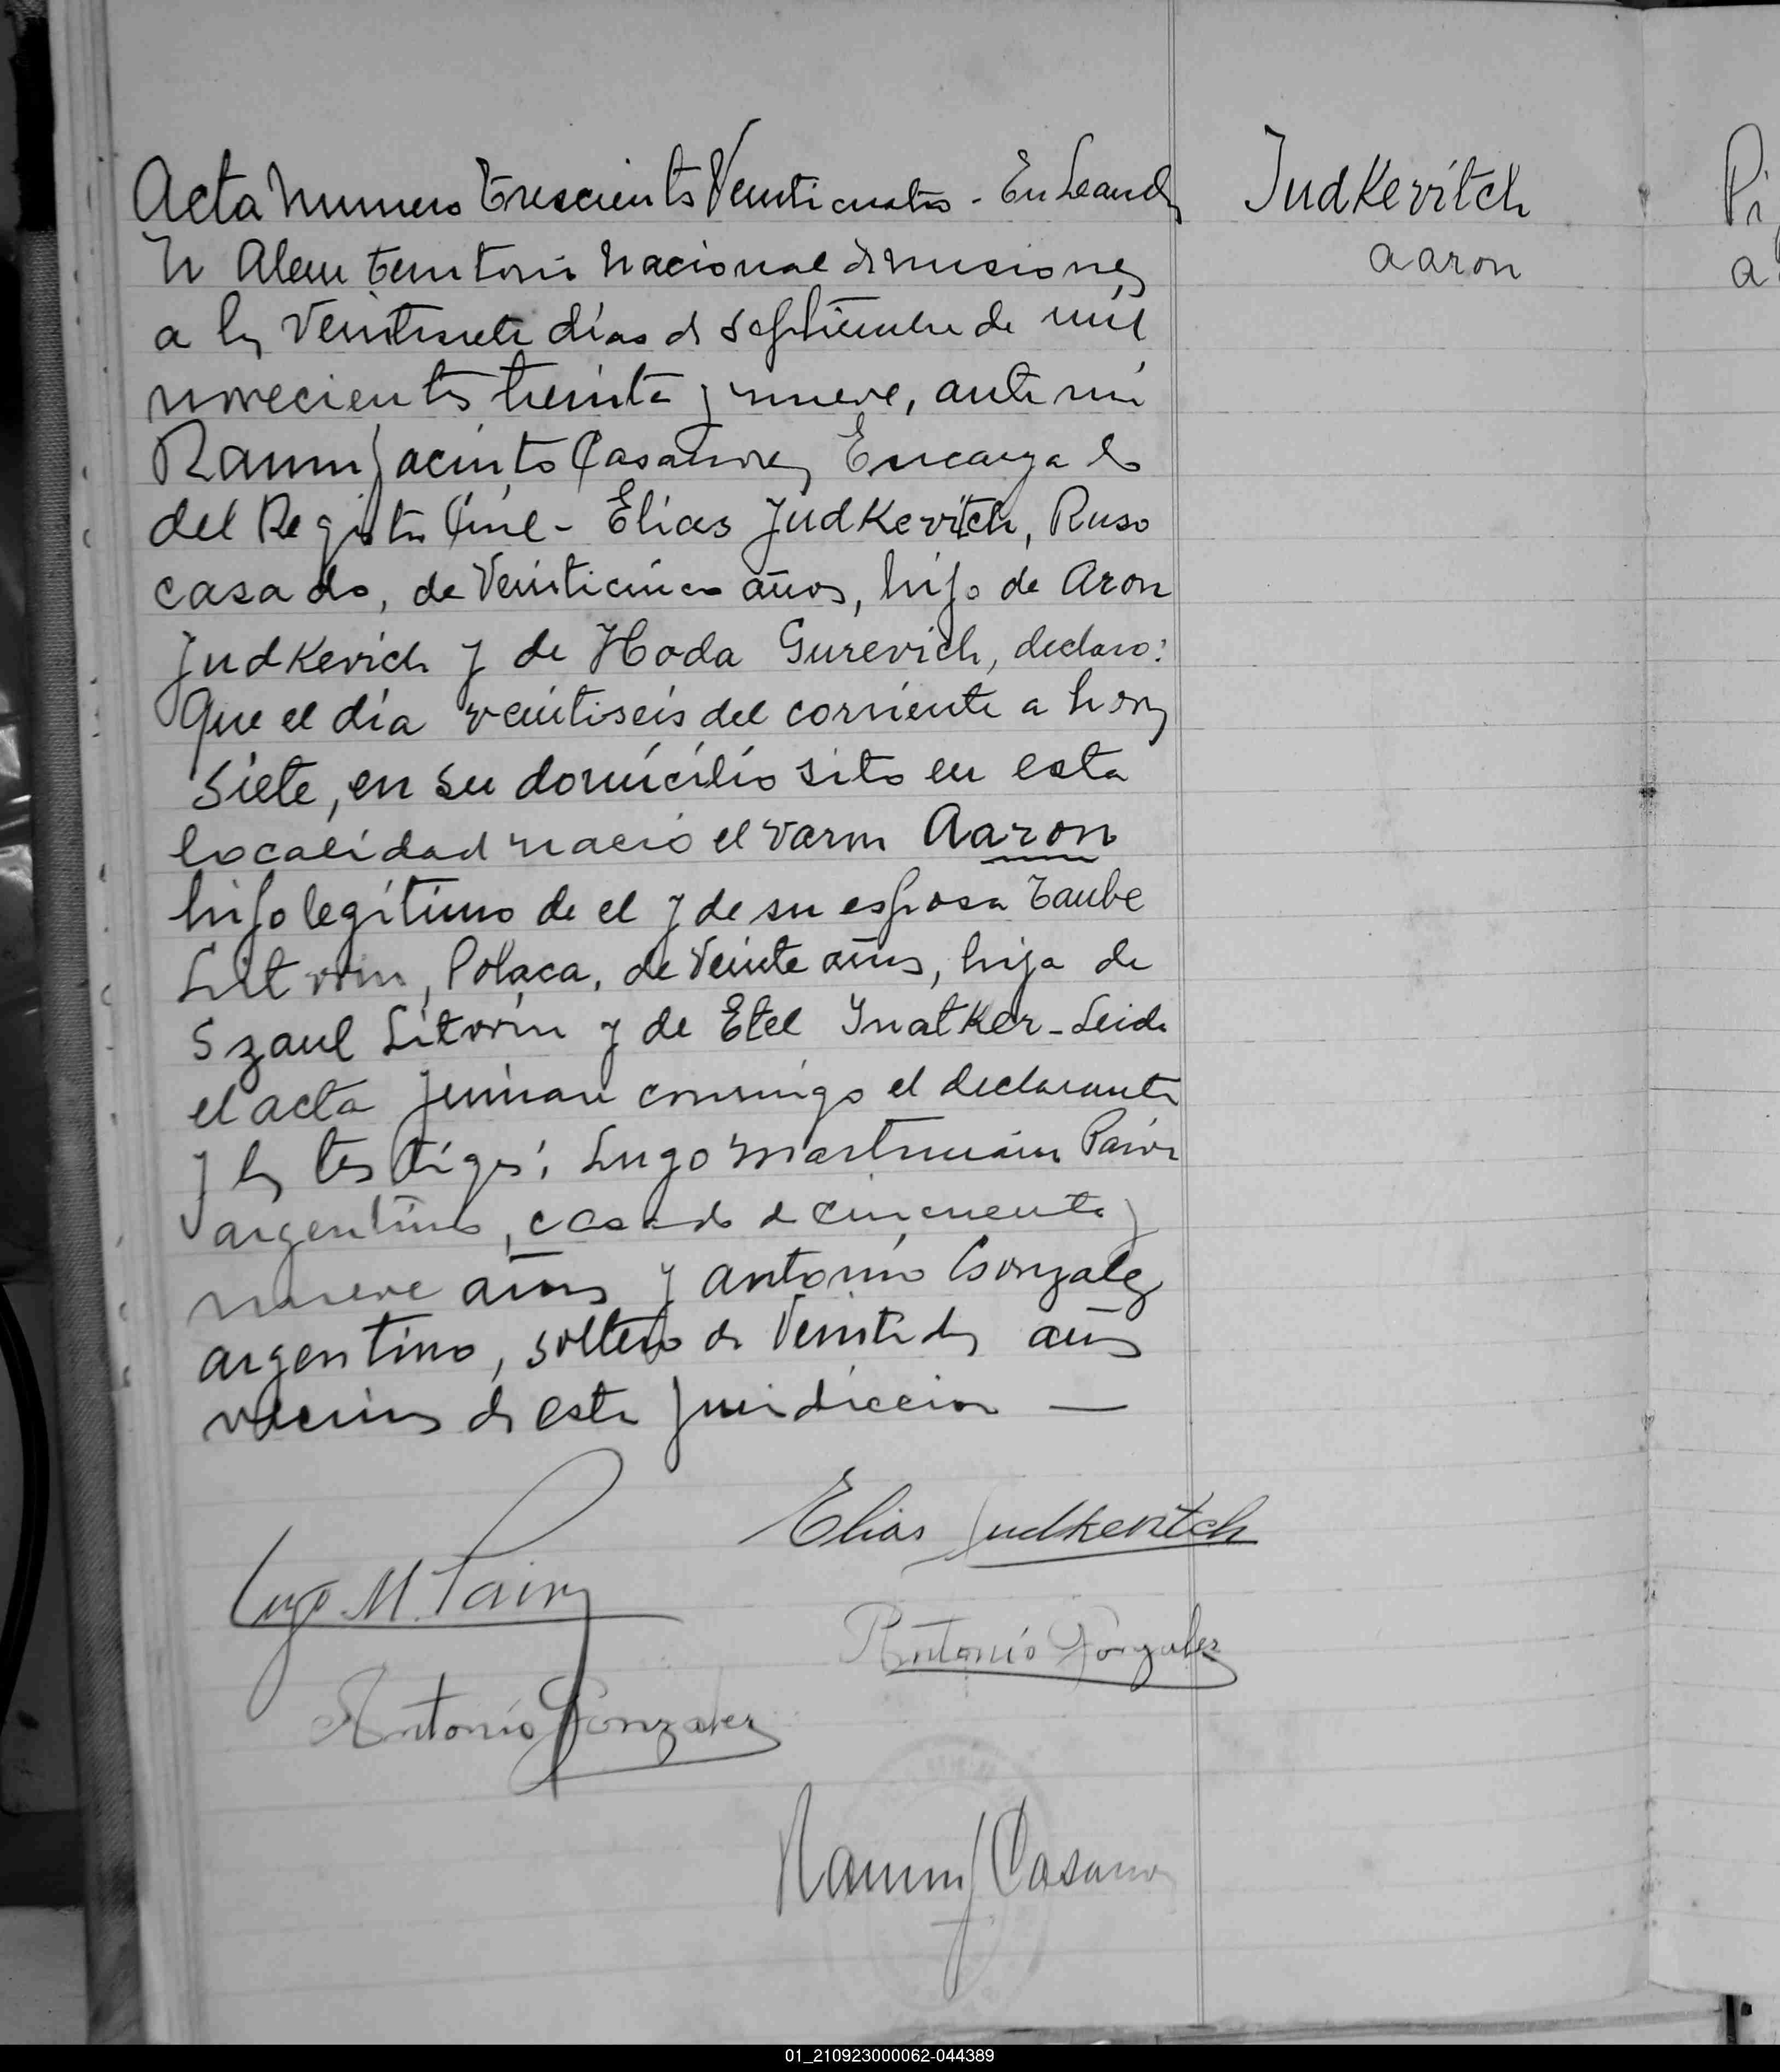 Acta Numero trescientos Veinticuatro - En Leandro
N Alem territorio Nacional de misiones
a los Veintisiete días de septiembre de mil
novecientos treinta y nueve, ante mi
Ramon Jacinto Casanova, Encargado
del Registro Civil - Elias Judkevitch, Ruso
casado, de Veinticinco años, hijo de Aron
Judkevich y de Hoda Gurevich, declaro:
Que el día veintiseis del corriente a horas
siete, en su domicilio sito en esta
localidad nació el varon Aaron
hijo legítimo de el y de su esposa Taube
Litvin, Polaca, de Veinte años, hija de
Szaul Litvin y de Etel - Leida
el acta firman conmigo el declarante
y los testigos: Lugo
argentino, casado de cincuenta y
nueve años y Antonio Gonzalez
argentino, soltero de Veintidos años
vecinos de esta Juridiccion —
Judkevitch
aaron
Pi
a
Elias Judkevitch
Lugo M.
Antonio Gonzalez
Antonio Gonzalez
Ramon J Casanova
01_210923000062-044389